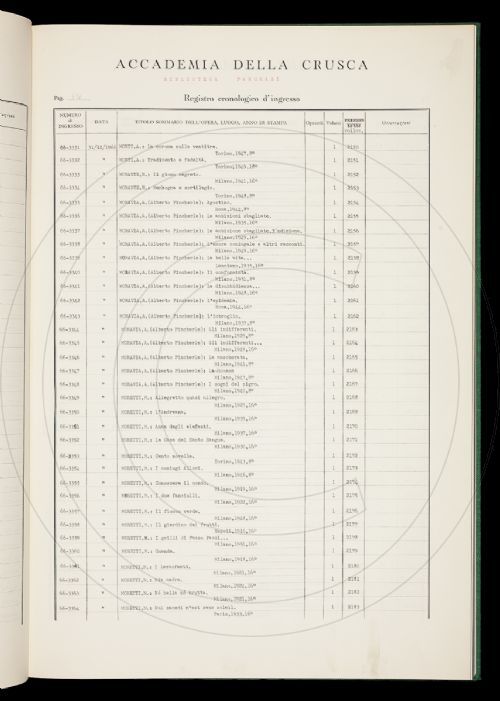 ACCADEMIA DELLA CRUSCA
BIBLIOTECA PANCRAZI
Pag.
Registro cronologico d'ingresso
NUMERO di INGRESSO DATA TITOLO SOMMARIO DELL'OPERA, LUOGO, ANNO DI STAMPA Opuscoli Volumi Osservazioni
66-3331 31/12/1966 MONTI,A.: La corona sulle ventitre. 1 2150
Torino,1947,8°
66-3332 " MONTI,A.: Tradimento e fedeltà. 1 2151
Torino,1949,16°
66-3333 " MORANTE,E.: Il gioco segreto. 1 2152
Milano,1941,16°
66-3334 " MORANTE,E.: Menzogna e sortilegio. 1 2153
Torino,1948,8°
66-3335 " MORAVIA,A.(Alberto Pincherle): Agostino. 1 2154
Roma,1944,8°
66-3336 " MORAVIA,A.(Alberto Pincherle): Le ambizioni sbagliate. 1 2155
Milano,1935,16°
66-3337 " MORAVIA,A.(Alberto Pincherle): Le ambizioni sbagliate. 1 2156
66-3338 " MORAVIA,A.(Alberto Pincherle): L'amore coniugale e altri racconti. 1 2157
Milano,1949,16°
66-3339 " MORAVIA,A.(Alberto Pincherle): La bella vita... 1 2158
Lanciano,1935,16°
66-3340 " MORAVIA,A.(Alberto Pincherle): Il conformista. 1 2159
Milano,1951,8°
66-3341 " MORAVIA,A.(Alberto Pincherle): La disubbidienza... 1 2160
Milano,1948,16°
66-3342 " MORAVIA,A.(Alberto Pincherle): L'epidemia. 1 2161
Roma,1944,16°
66-3343 " MORAVIA,A.(Alberto Pincherle): L'imbroglio. 1 2162
Milano,1937,8°
66-3344 " MORAVIA,A.(Alberto Pincherle): Gli indifferenti. 1 2163
Milano,1929,8°
66-3345 " MORAVIA,A.(Alberto Pincherle): Gli indifferenti... 1 2164
66-3346 " MORAVIA,A.(Alberto Pincherle): La mascherata. 1 2165
Milano,1941,8°
66-3347 " MORAVIA,A.(Alberto Pincherle): La romana 1 2166
Milano,1947,8°
66-3348 " MORAVIA,A.(Alberto Pincherle): I sogni del pigro. 1 2167
Milano,1940,8°
66-3349 " MORETTI,M.: Allegretto quasi allegro. 1 2168
66-3350 " MORETTI,M.: L'Andreana. 1 2169
Milano,1935,16°
66-3351 " MORETTI,M.: Anna degli elefanti. 1 2170
Milano,1937,16°
66-3352 " MORETTI,M.: La Casa del Santo Sangue. 1 2171
Milano,1930,16°
66-3353 " MORETTI,M.: Cento novelle. 1 2172
Torino,1943,8°
66-3354 " MORETTI,M.: I coniugi Allori. 1 2173
Milano,1946,8°
66-3355 " MORETTI,M.: Conoscere il mondo. 1 2174
Milano,1919,16°
66-3356 " MORETTI,M.: I due fanciulli. 1 2175
Milano,1922,16°
66-3357 " MORETTI,M.: Il fiocco verde. 1 2176
Milano,1948,16°
66-3358 " MORETTI,M.: Il giardino dei frutti.
66-3359 " MORETTI,M.: I grilli di Pazzo Pazzi...
Milano,1951,16°
66-3360 " MORETTI,M.: Guenda. 1
Milano,1918,16°
66-3361 " MORETTI,M.: I lestofanti. 1 2180
66-3362 " MORETTI,M.: Mia madre. 1 2181
Milano,1924,16°
66-3363 " MORETTI,M.: Né bella né brutta. 1 2182
Milano,1921,16°
66-3364 " MORETTI,M.: Nei sandri n'est sans calcul. 1 2183
Paris,1933,16°